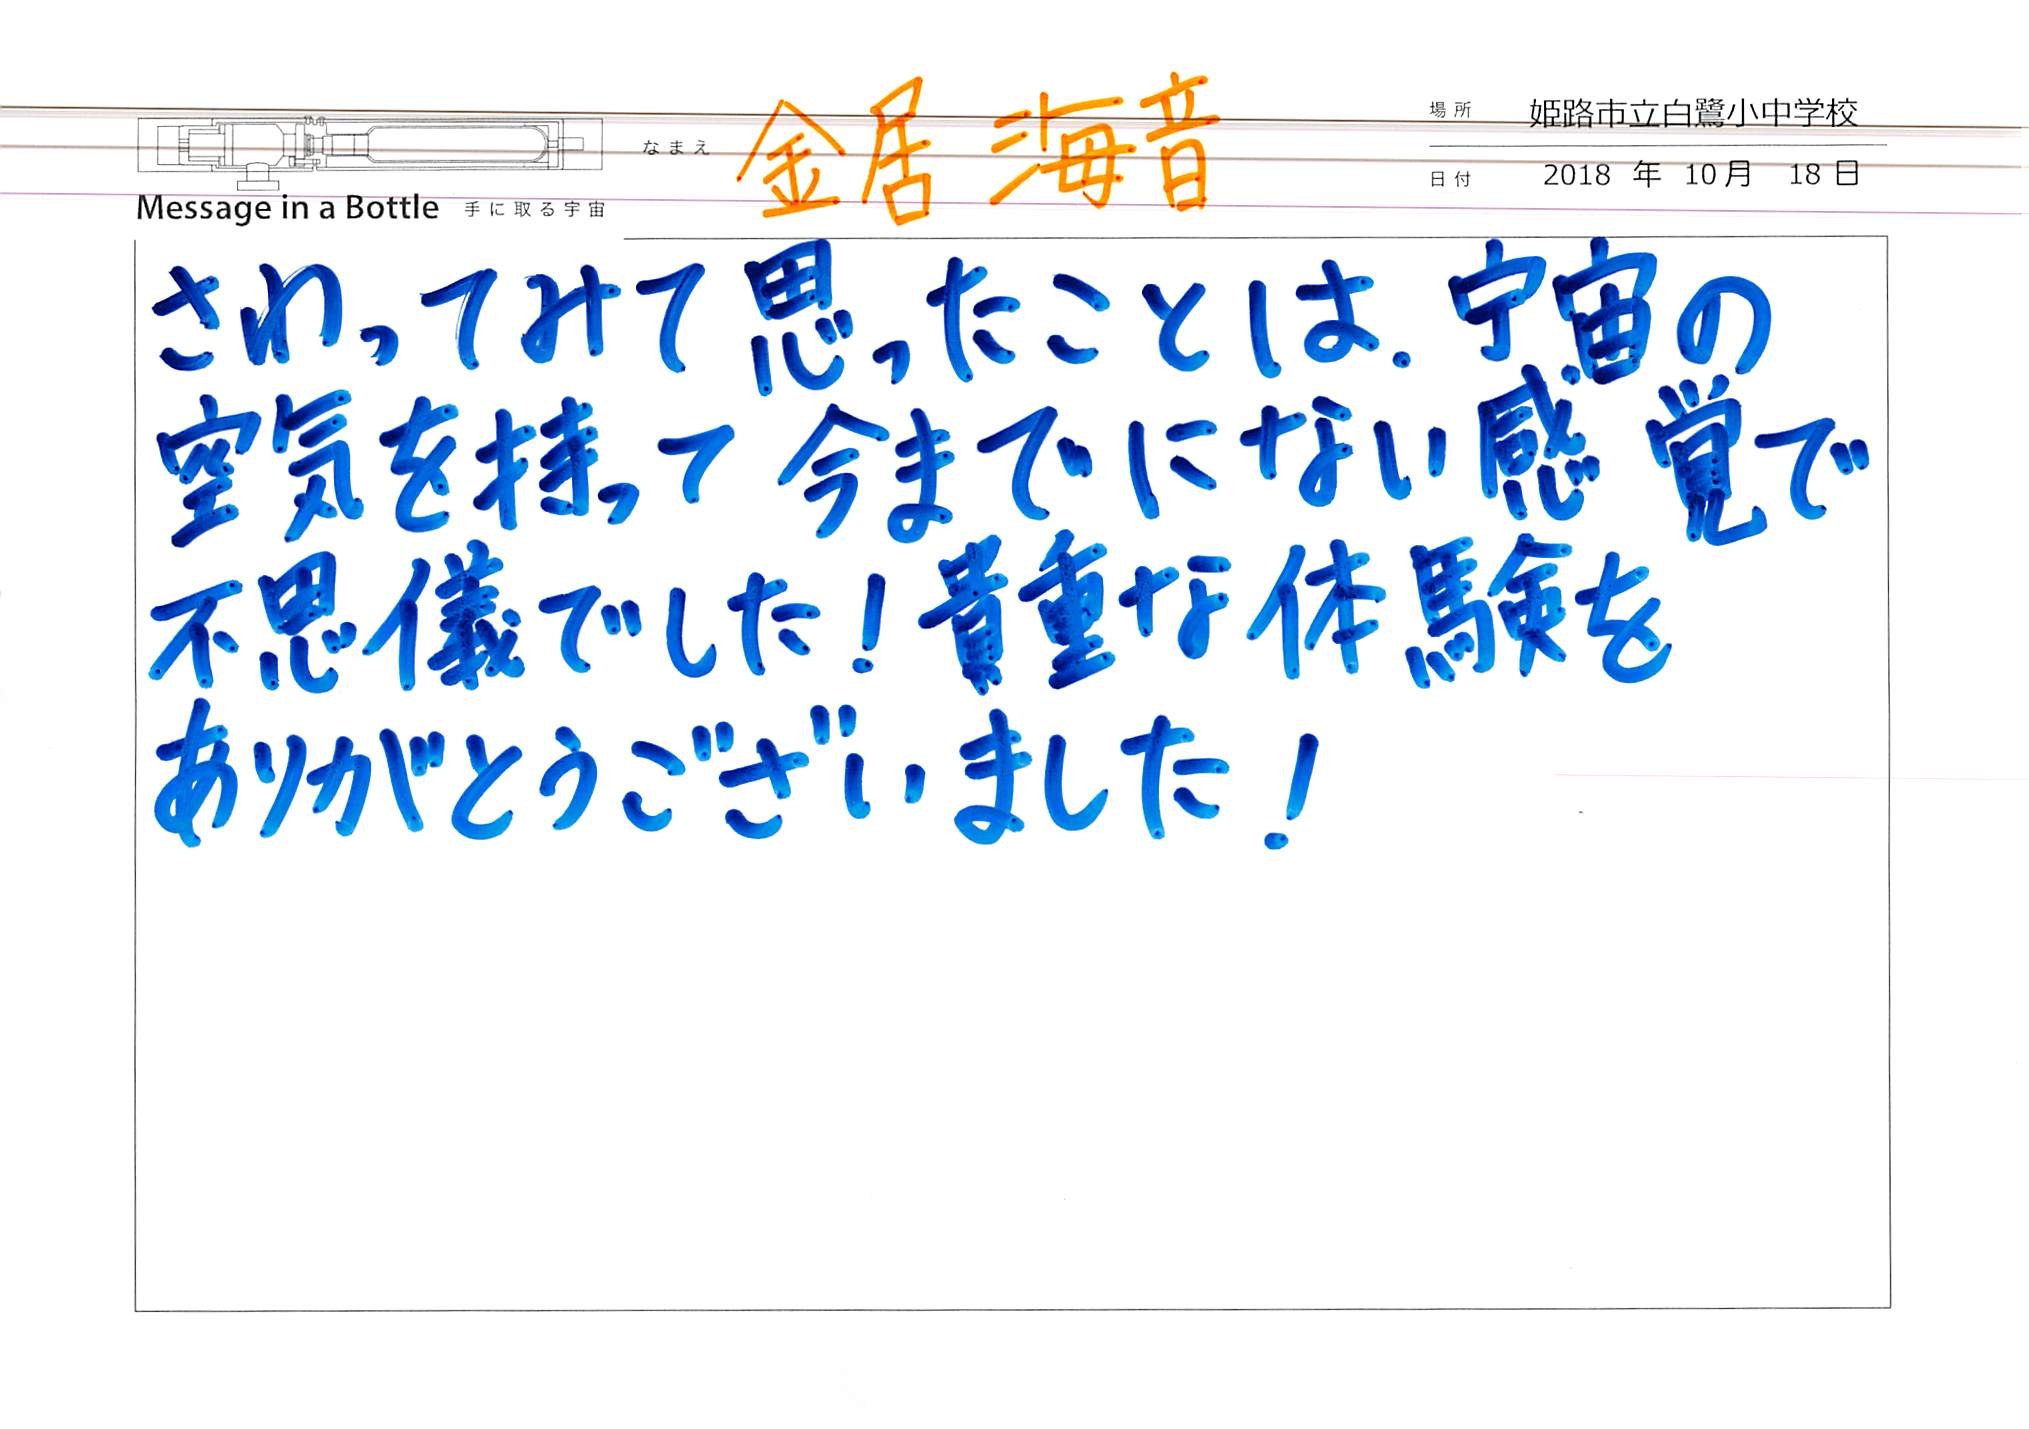 なまえ 金居 海音
場所 姫路市立白鷺小中学校
日付 2018 年 10月 18日
Message in a Bottle 手に取る宇宙
さわってみて思ったことは、宇宙の
空気を持って今までにない感覚で
不思儀でした！貴重な体験を
ありがとうございました！